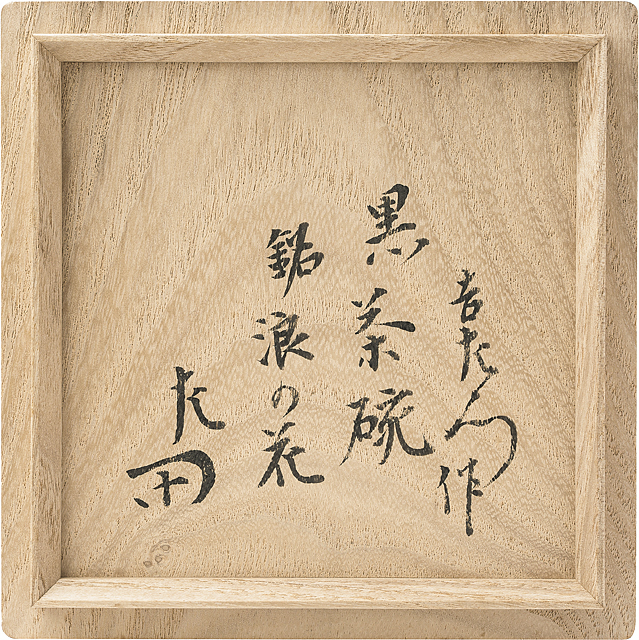 吉左衛門作
黒茶碗
銘浪の花
左